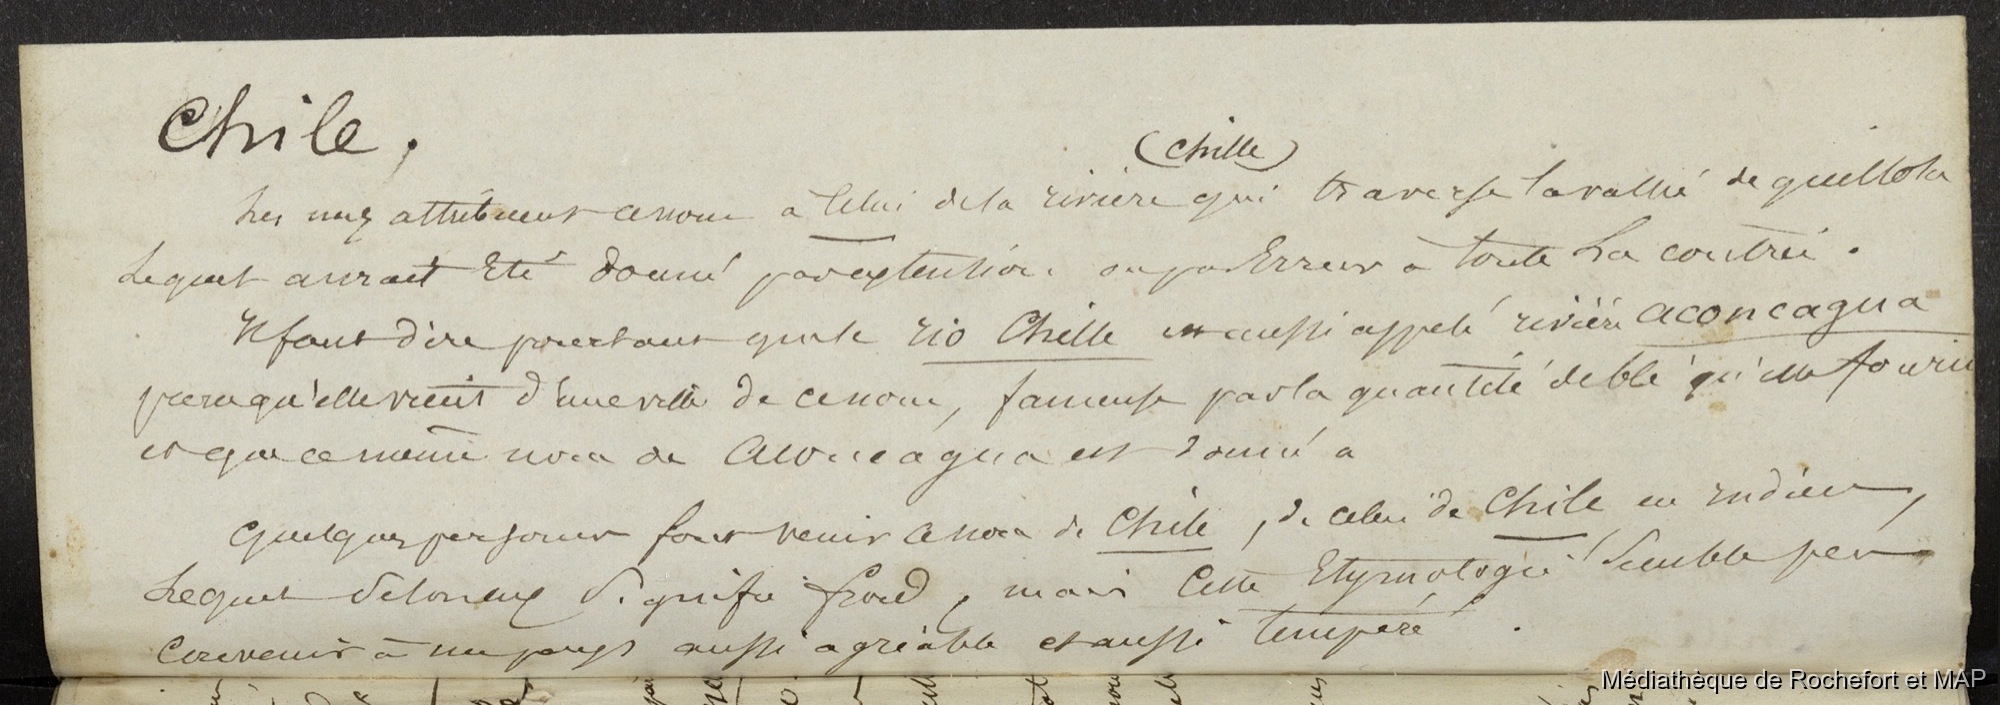 Chile.
(Chille)
Les uns attribuent ce nom a celui de la riviere qui traverse la vallée de quillota
Lequel aurait Eté donné par extention ou par Erreur à toute La contrée.
Il faut dire pourtant que le rio Chille est aussi appelé rivière aconcagua
parcequ'elle vient d'une ville de ce nom, fameuse par la quantité de blé qu'elle fourni
et que ce même nom de aconcagua est donné a
Quelques personnes font venir ce nom de Chile, de celui de Chile en indien,
Lequel Selon eux Signifie froid, mais Cette Etymologie Semble peu
Convenir à un pays aussi agréable et aussi tempéré.
Médiathèque de Rochefort et MAP